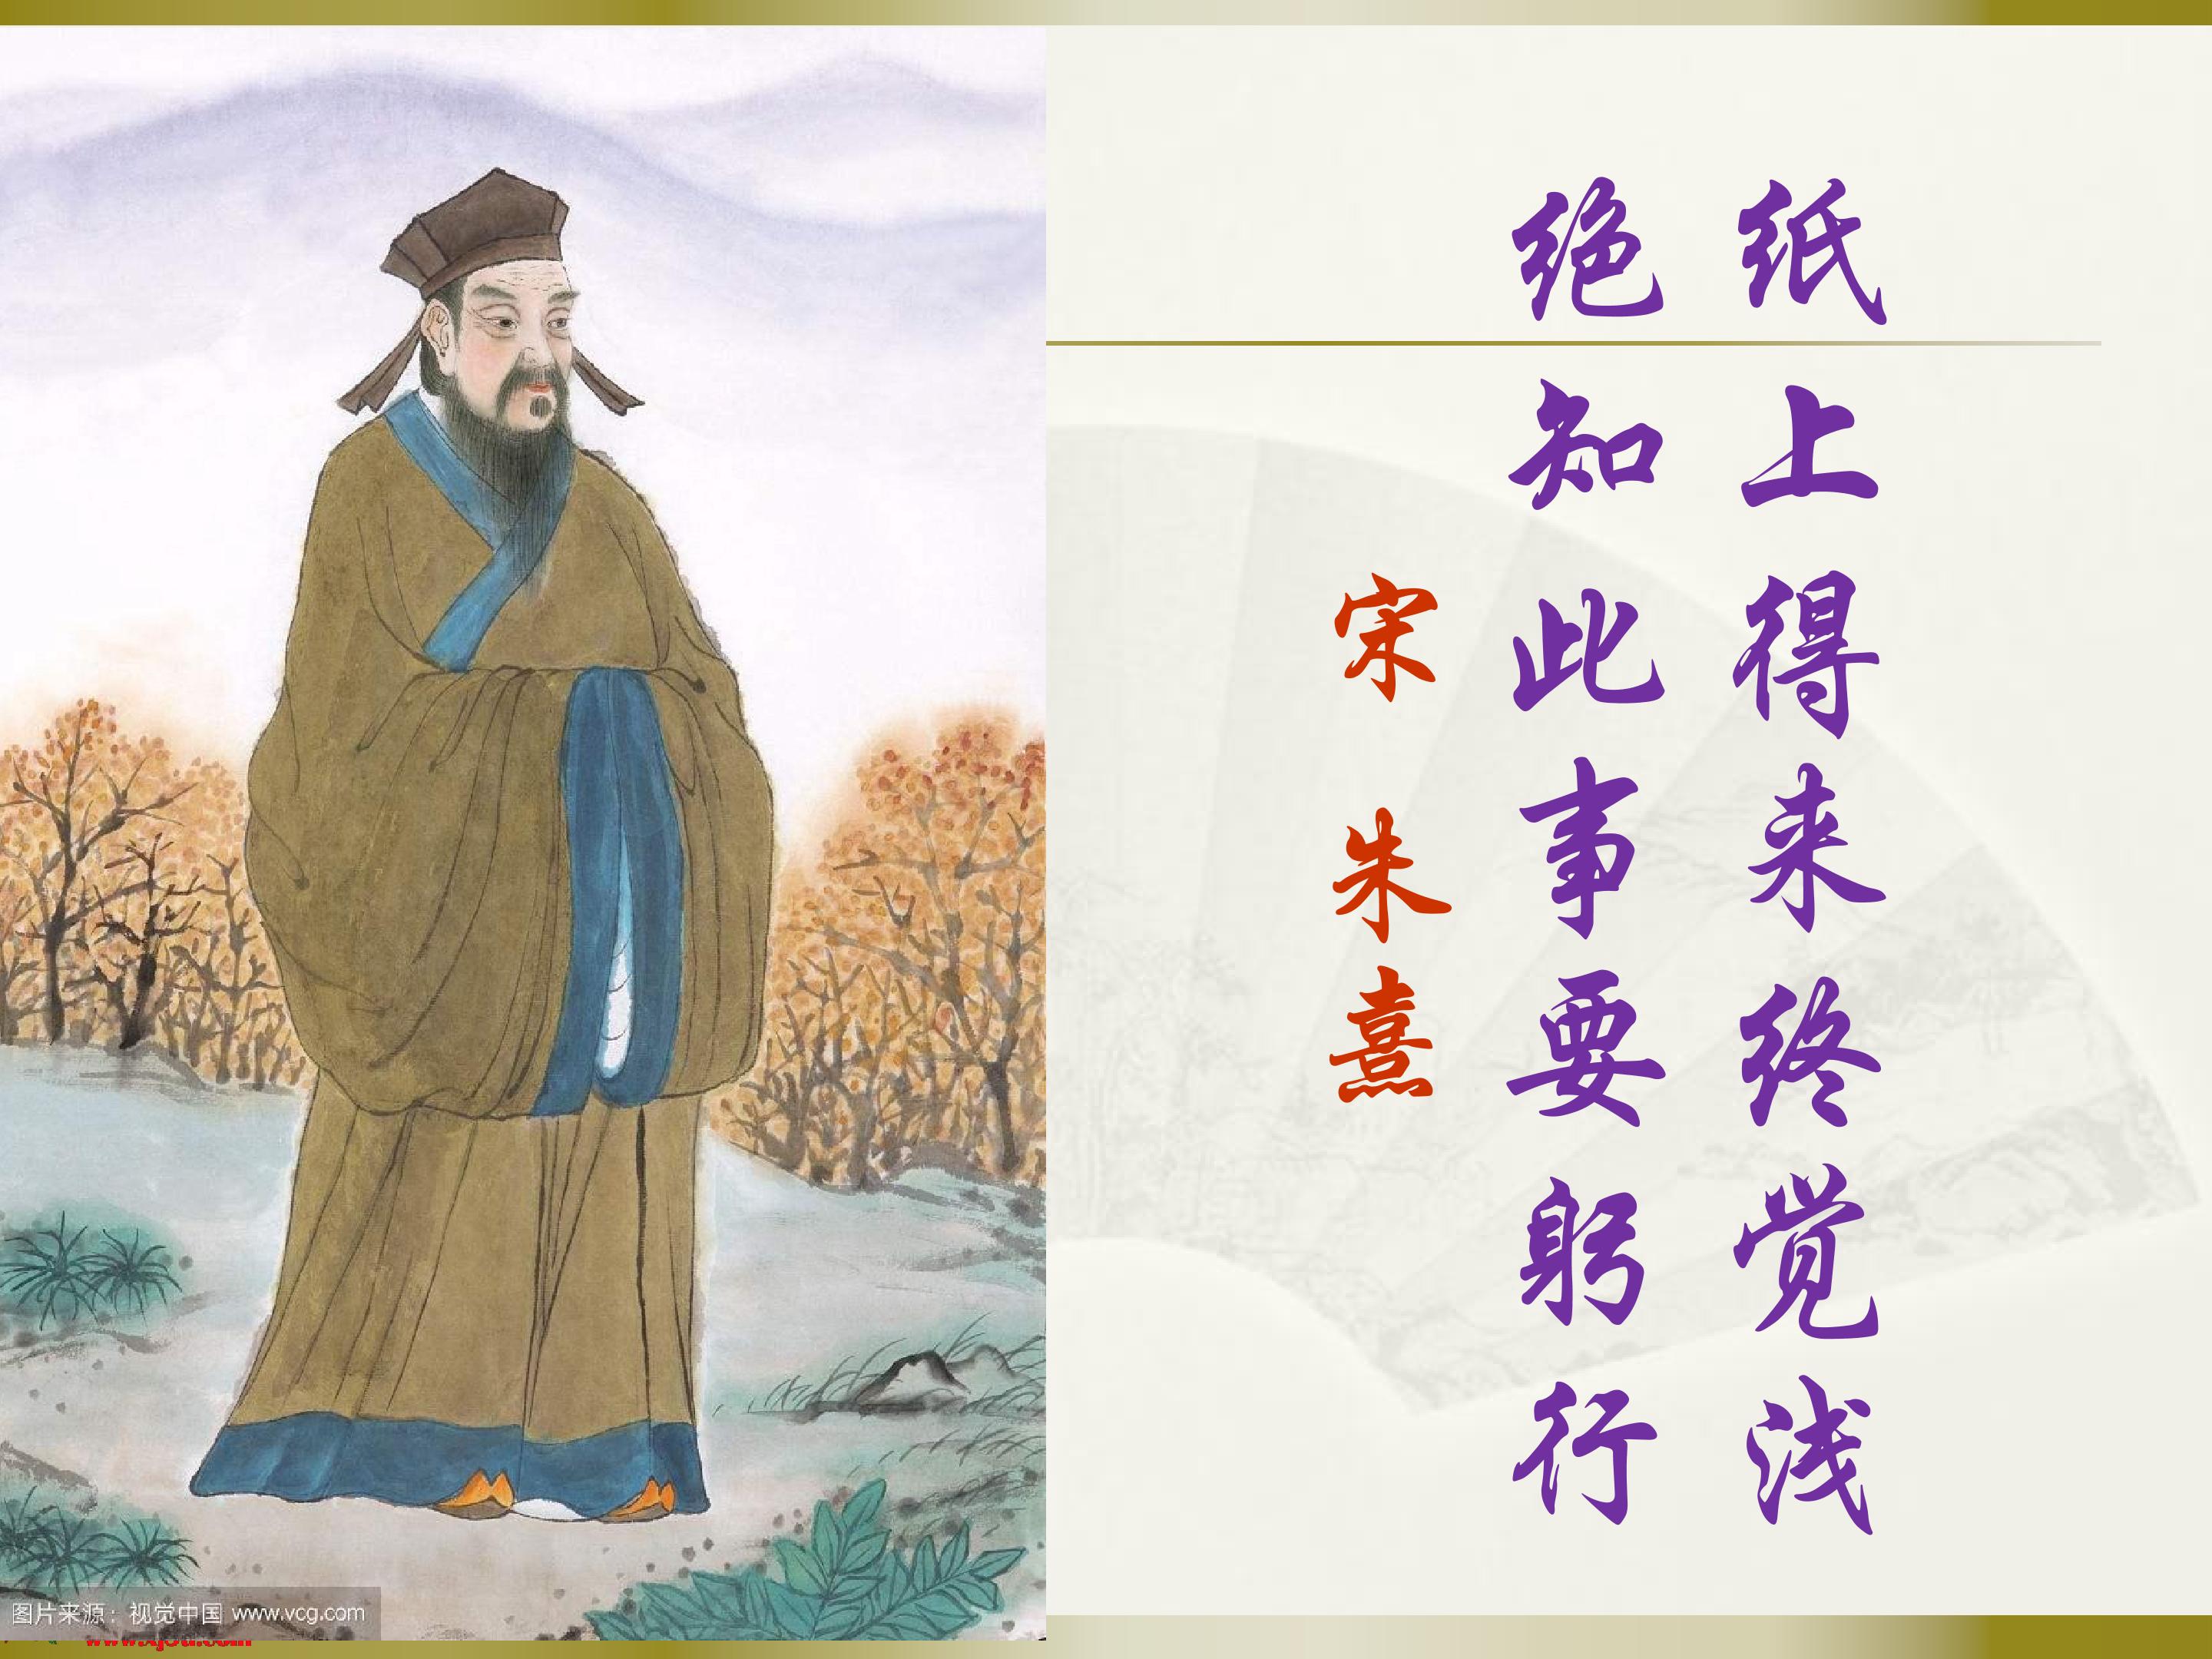 纸上得来终觉浅
绝知此事要躬行
宋 朱熹
图片来源：视觉中国 www.vcg.com